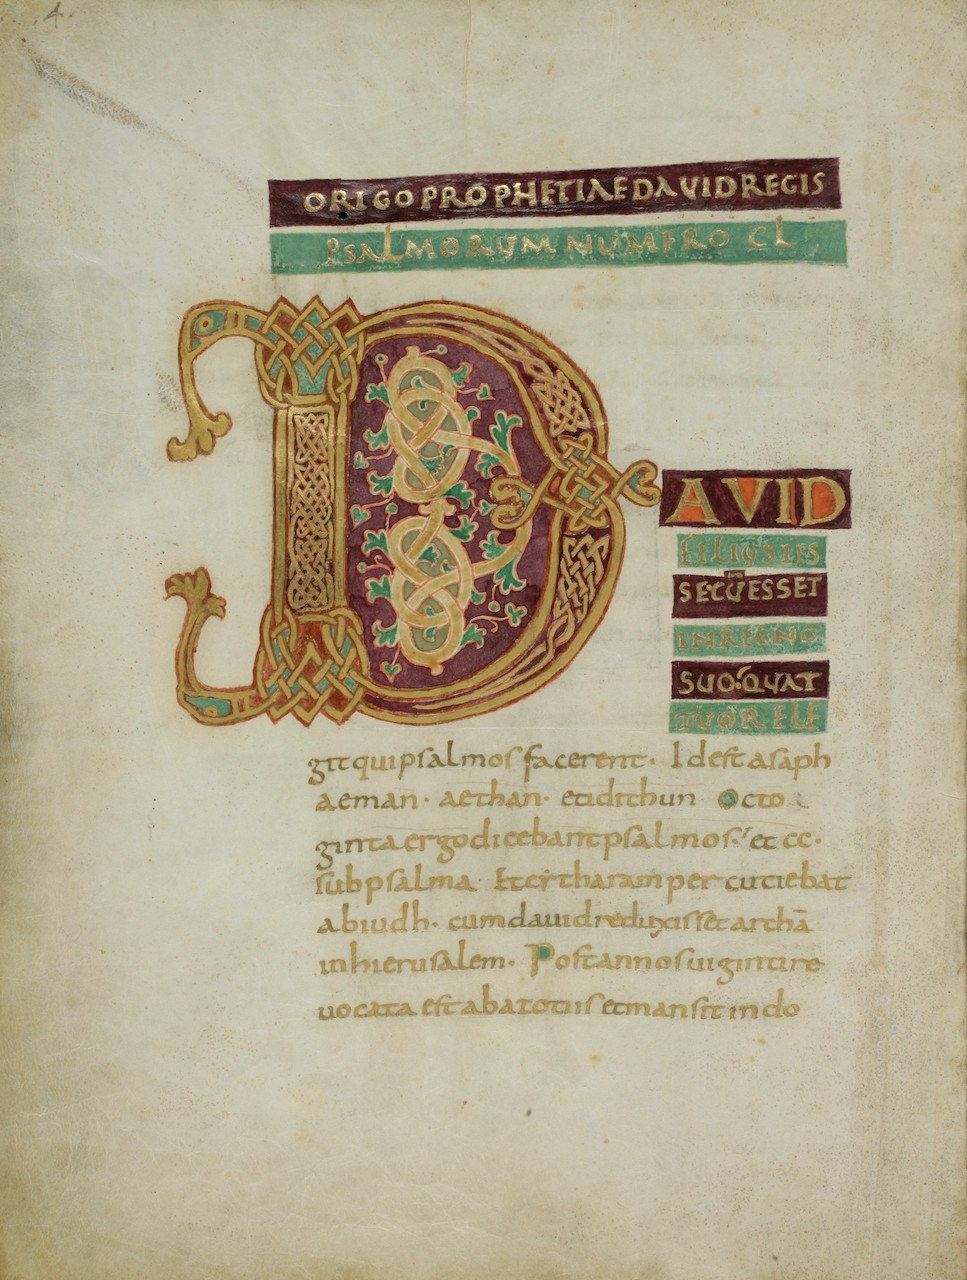 4.
ORIGO PROPHETIAE DAVID REGIS
PSALMORUM NUMERO CL
DAVID
FILIUS IES
SE CŪ ESSET
IN REGNO
SUO· QUAT
TUOR ELE
git qui psalmos facerent· Id est asaph
aeman· aethan· et idithun Octo
ginta ergo dicebant psalmos· et cc·
subpsalma Et cytharam percutiebat
abiudh· cum dauid reduxisset archā
in hierusalem· Post annos uiginti re
uocata est ab azotiis et mansit in do